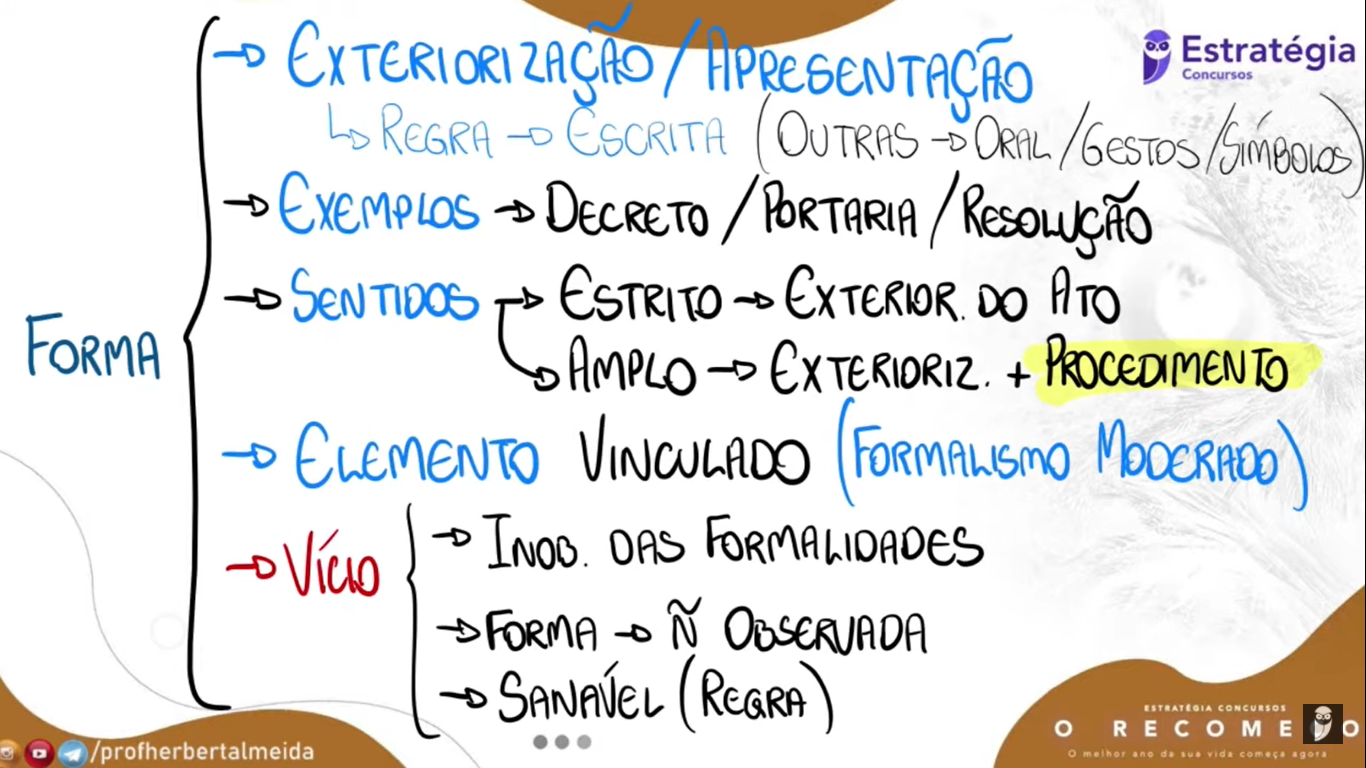 Estratégia
Concursos
→ EXTERIORIZAÇÃO / APRESENTAÇÃO
↳ REGRA → ESCRITA (OUTRAS → ORAL / GESTOS / SÍMBOLOS)
→ EXEMPLOS → DECRETO / PORTARIA / RESOLUÇÃO
→ SENTIDOS → ESTRITO → EXTERIOR. DO ATO
→ AMPLO → EXTERIORIZ. + PROCEDIMENTO
FORMA
→ ELEMENTO VINCULADO (FORMALISMO MODERADO)
→ VÍCIO
→ INOB. DAS FORMALIDADES
→ FORMA → Ñ OBSERVADA
→ SANAVÉL (REGRA)
/profherbertalmeida
ESTRATÉGIA CONCURSOS
O RECOMEÇO
O melhor ano da sua vida começa agora